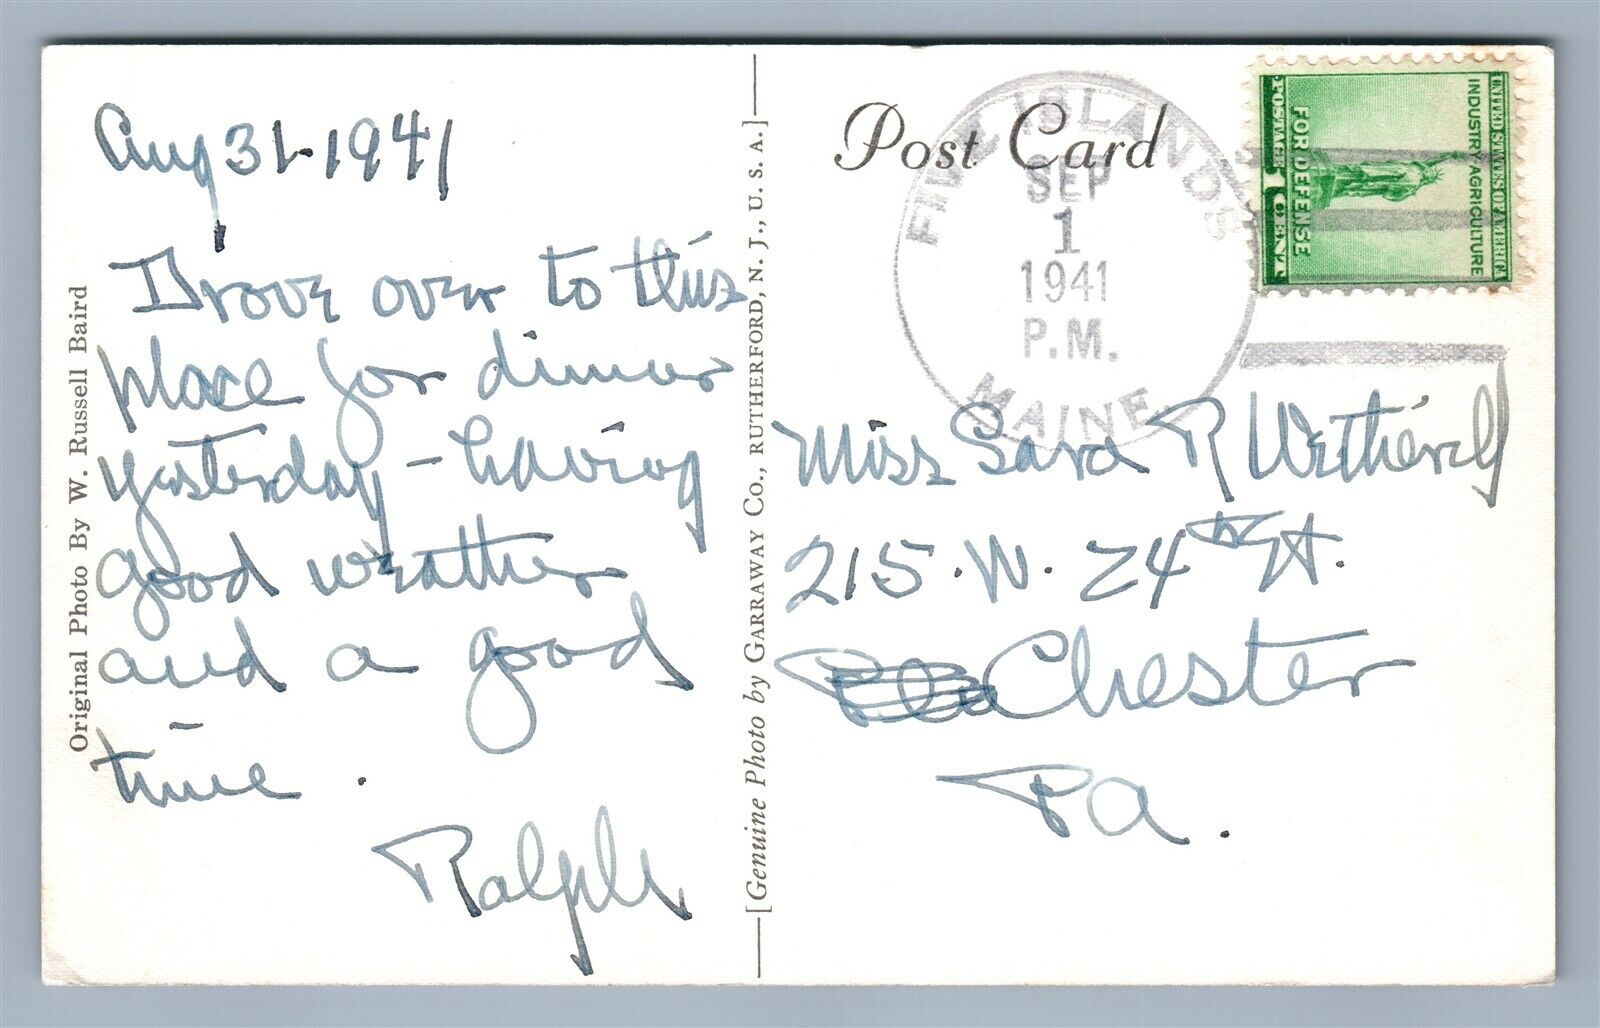 Aug 31-1941
Drove over to this
place for dinner
yesterday - having
good weather
and a good
time.
Ralph
Original Photo By W. Russell Baird
[Genuine Photo by GARRAWAY Co., RUTHERFORD, N. J., U. S. A.]
Post Card
FIVE ISLANDS
SEP
1
1941
P.M.
MAINE.
UNITED STATES OF AMERICA
INDUSTRY AGRICULTURE
FOR DEFENSE
POSTAGE 1 CENT
Miss Sara R Wetherely
215 W. 24th St.
Chester
Pa.